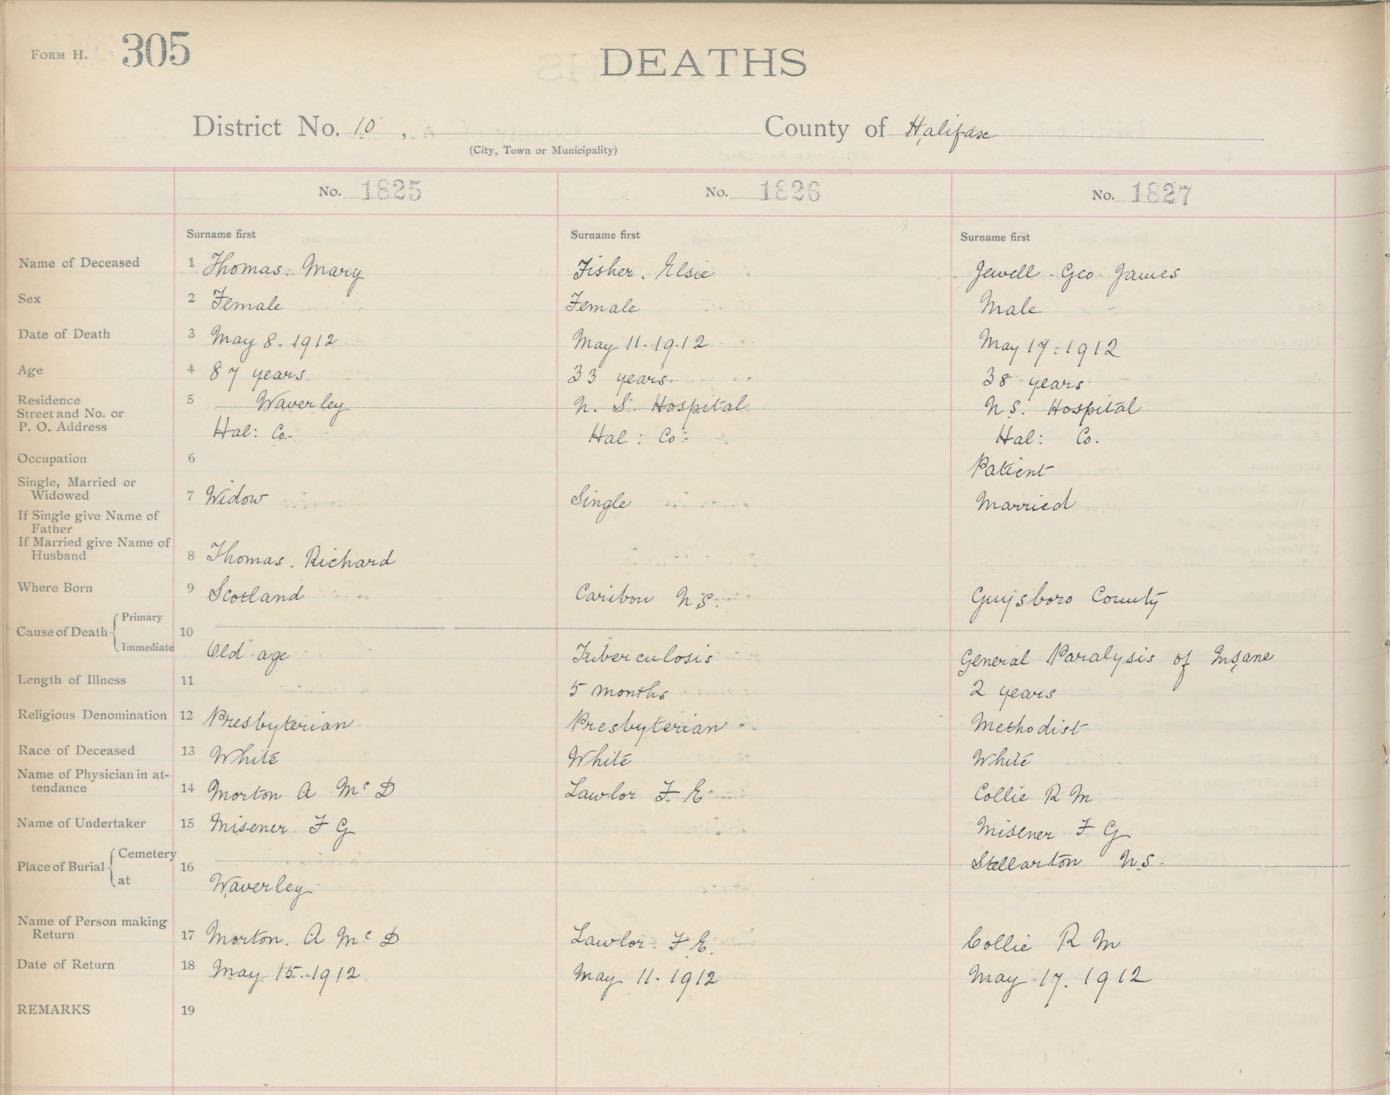 FORM H. 305
DEATHS
District No. 10 , County of Halifax
(City, Town or Municipality)
No. 1825 No. 1826 No. 1827
Surname first Surname first Surname first
Name of Deceased 1 Thomas. Mary Fisher. Elsie Jewell. Geo James
Sex 2 Female Female Male
Date of Death 3 May 8. 1912 May 11. 1912 May 17. 1912
Age 4 87 years 33 years 38 years
Residence 5 Waverley N. S. Hospital N.S. Hospital
Street and No. or
P. O. Address Hal: Co. Hal: Co: Hal: Co.
Occupation 6 Patient
Single, Married or
Widowed 7 Widow Single Married
If Single give Name of
Father
If Married give Name of
Husband 8 Thomas. Richard
Where Born 9 Scotland Caribou N.S. Guysboro County
Cause of Death Primary
10
Immediate Old age Tuberculosis General Paralysis of Insane
Length of Illness 11 5 months 2 years
Religious Denomination 12 Presbyterian Presbyterian Methodist
Race of Deceased 13 White White White
Name of Physician in at-
tendance 14 Morton A McD Lawlor F. E. Collie R M
Name of Undertaker 15 Misener F G Misener F G
Place of Burial Cemetery 16 Stellarton N.S.
at Waverley
Name of Person making
Return 17 Morton. A McD Lawlor. F. E. Collie R M
Date of Return 18 May 15. 1912 May 11. 1912 May 17. 1912
REMARKS 19